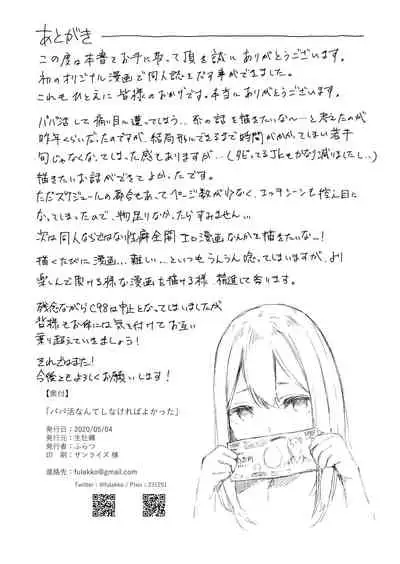 あとがき
この度は本書をお手に取って頂き誠にありがとうございます。
初のオリジナル漫画で同人誌をだす事ができました。
これもひとえに皆様のおかげです。本当にありがとうございます。
パパ活して痛い目に遭ってしまう..系の話を描きたいな〜と考えたのが
昨年くらいだったのですが、結局形にできるまで時間がかかってしまい若干
旬じゃなくなってしまった感もありますが..(タピってるJKもかなり減りましたし..)
描きたいお話ができてよかったです。
ただスケジュールの都合もあってページ数が少なく、エッチシーンも控え目に
なってしまったので、物足りなかったらすみません...
次は同人ならではな性癖全開エロ漫画なんかも描きたいな〜!
描くたびに漫画...難しい...といつもうんうん唸ってしまいますが、より
楽しんで頂ける様な漫画を描ける様精進して参ります。
残念ながらC98は中止となってしまいましたが
皆様もお体には気を付けてお互い
乗り越えていきましょう!
それではまた!
今後ともよろしくお願いします!
【奥付】
「パパ活なんてしなければよかった」
発行日:2020/05/04
発行元:生牡蠣
発行者:ふらつ
印 刷:サンライズ 様
連絡先:fulakko@gmail.com
Twitter:@fulakko / Pixiv: